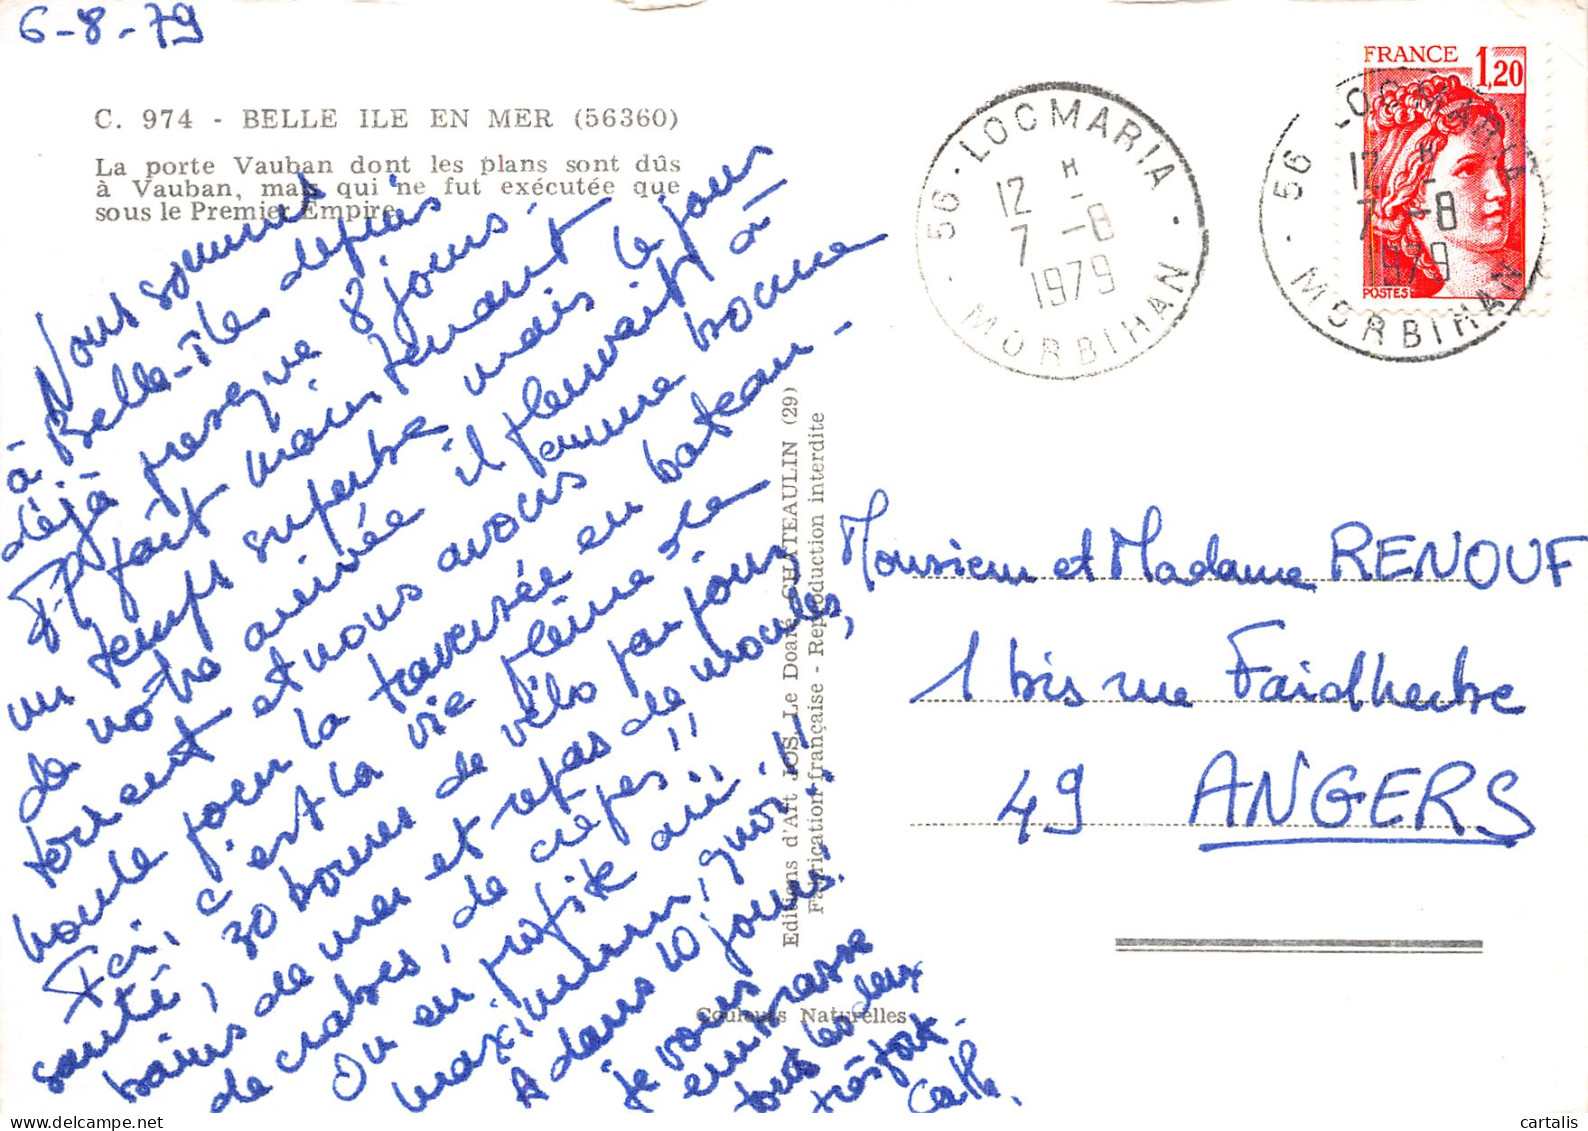 6-8-79
C. 974 - BELLE ILE EN MER (56360)
La porte Vauban dont les plans sont dûs
à Vauban, mais qui ne fut exécutée que
sous le Premier Empire.
Nous sommes
à Belle-île depuis
déjà presque 8 jours.
Il fait maintenant
un temps superbe mais le jour
de notre arrivée il pleuvait à
torrent et nous avons eu une bonne
houle pour la traversée en bateau -
Ici, c'est la vie pleine de
santé, 30 bornes de vélo par jour
bains de mer et repas de moules,
de crabes, de crêpes !!
On en profite au
maximum, quoi !!
A dans 10 jours !
je vous
embrasse
tous les deux
très fort.
Editions d'Art JOS Le Doaré CHATEAULIN (29)
Fabrication française - Reproduction interdite
Couleurs Naturelles
56 - LOCMARIA
12 H -
7 - 8
1979
MORBIHAN
FRANCE 1,20
POSTES
56 LOCMARIA
12 H -
7 - 8
1979
MORBIHAN
Monsieur et Madame RENOUF
1 bis rue Faidherbe
49 ANGERS
delcampe.net
cartalis